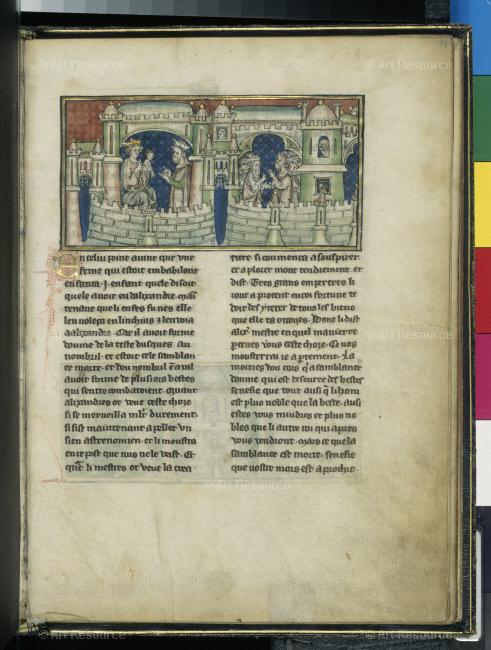 En celui point auint que vne
feme qui estoit en babilonie
enfanta .i. enfant quele disoit
quele auoit eu dalixandre. main
tenant que li enfes fu nes elle
len uolepa en linchius z lenuoia
a alixandre. Car il auoit forme
doume de la teste dusques au
nombril. et estoit cele samblan
ce morte. et dou nombril en aual
auoit forme de plusiors bestes
qui sentre combatoient. quant
alixandres ot veue ceste choze
si se merueilla mlt durement.
si fist maintenant apeller vn
sien astrenomien. et li moustra
en repost que nus ne le vist. Et
quant li mestres ot veue la crea
ture. si coumenca a souspirer.
et a plorer mout tendrement. et
dist. Tres grans empereres li
iour aprocent encoi fortune te
doit des yreter de tous les biens
que elle ta otroies. Dont li dist
alix. mestre en quel maniere
peceues vous ceste choze. Ce vos
mousterrai ie apertement. La
moities dou cors qui a samblance
doume qui est deseure des bestes
senefie que tout ausi que li hom
est plus noble que la beste. ausi
estes vous miudres et plus no
bles que li autre roi qui apres
vous vendront. mais ce que la
samblance est morte. senefie
que vostre mors est aprochie.
© Art Resource